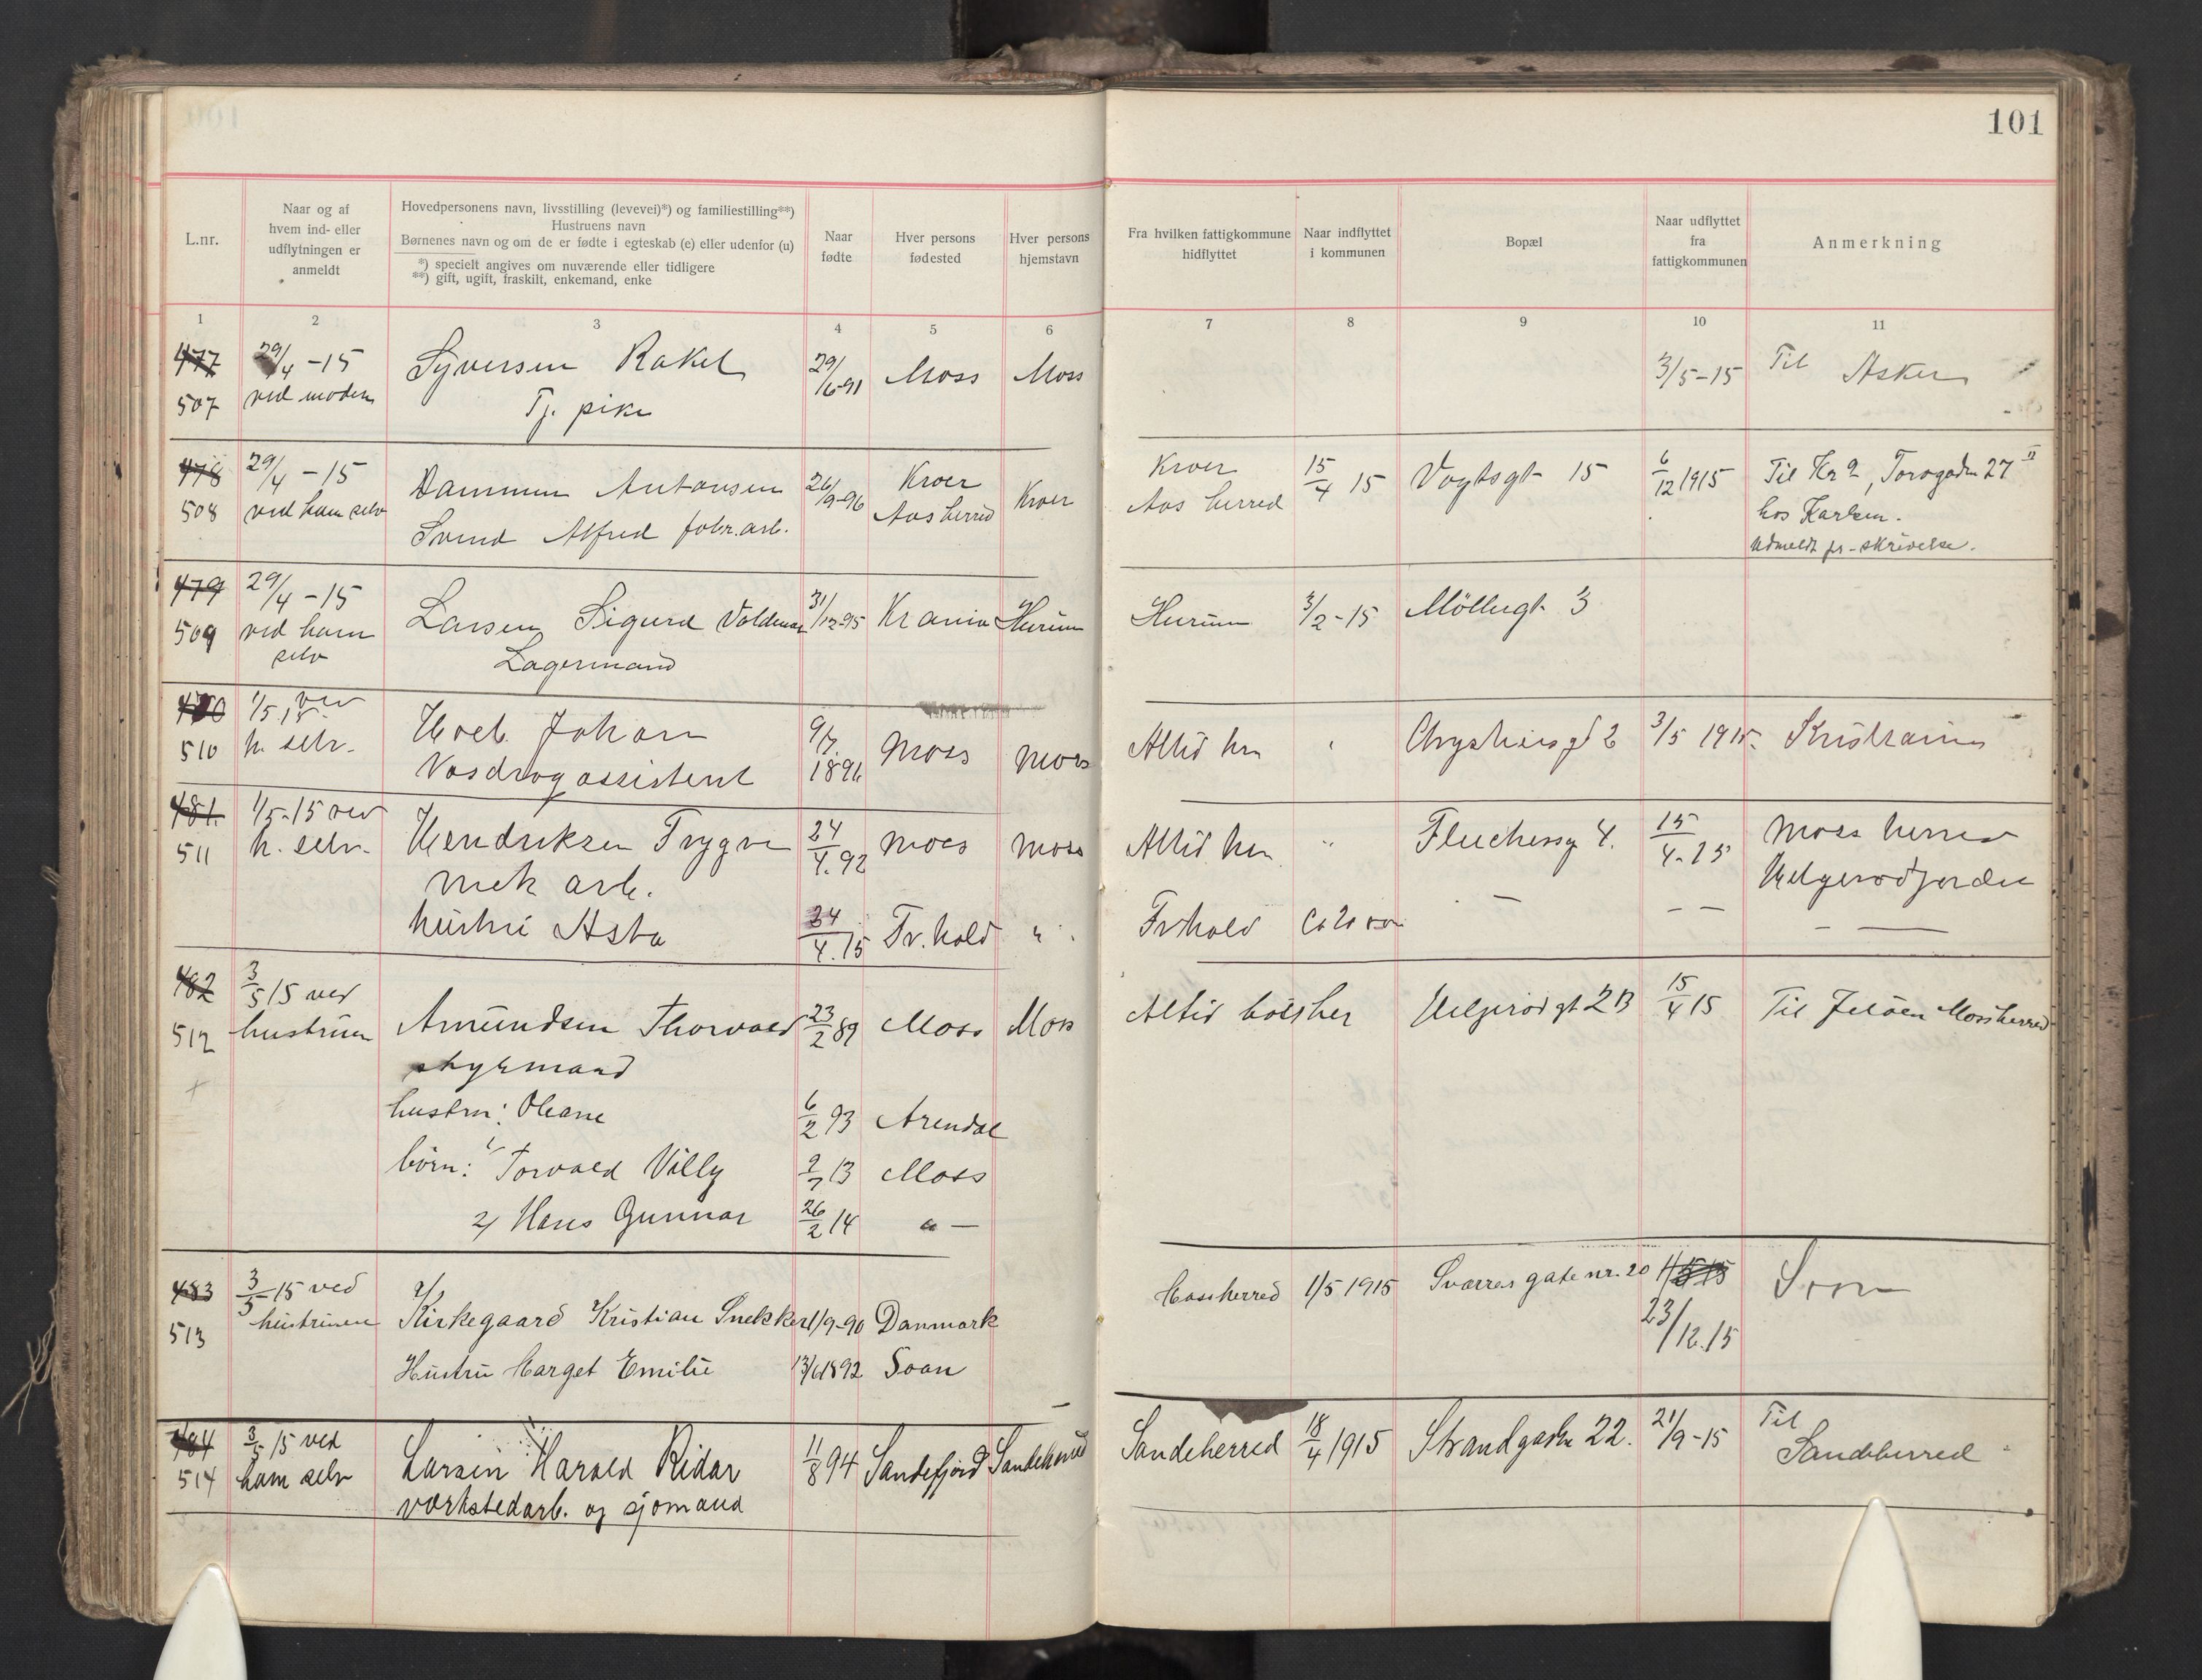 101
L.nr.
Naar og af
hvem ind- eller
udflytningen er
anmeldt
Hovedpersonens navn, livsstilling (levevei)*) og familiestilling**)
Hustruens navn
Børnenes navn og om de er fødte i egteskab (e) eller udenfor (u)
*) specielt angives om nuværende eller tidligere
**) gift, ugift, fraskilt, enkemand, enke
Naar
fødte
Hver persons
fødested
Hver persons
hjemstavn
Fra hvilken fattigkommune
hidflyttet
Naar indflyttet
i kommunen
Bopæl
Naar udflyttet
fra
fattigkommunen
Anmerkning
1 2 3 4 5 6 7 8 9 10 11
477 29/4-15 Syversen Rakel 29/6-91 Moss Moss 3/5-15 Til Asker
507 ved moderen Tj. pike
478 29/4-15 Dammen Antonsen 26/9-96 Kroer Kroer Kroer 15/4 15 Vogtsgt 15 6/12 1915 Til Kr a, Torvgaden 27 II
508 ved ham selv Svend Alfred fabr.arb. Aas herred Aas herred hos Karlsen.
Udmeldt pr. skrivelse.
479 29/4-15 Larsen Sigurd Valdemar 31/12-95 Krania Hurum Hurum 3/2-15 Möllergt 3
509 ved ham Lagermand
selv
480 1/5.15 ved Hoel Johan 9/7. Moss Moss Altid her " 2 3/5 1915. Kristiania
510 h. selv. Vasdragassistent 1896
481. 1/5-15 ved Hendriksen Trygve 24/4.92 Moss Moss Altid her " 4. 15/4-15 Moss herred
511 h. selv. mek arb. Helgerødjordet
hustru Asta 24/4.15 Fr.hald " Frhald — — — — —
482 3/5 15 ved Amundsen Thorvald 23/2 89 Moss Moss Altid boet her Helgerødgt 2B 15/4 15 Til Jeløen Moss herred
512 hustruen styrmand
hustru: Oleane 6/2 93 Arendal
børn: 1/ Torvald Villy 9/7 13 Moss
2/ Hans Gunnar 26/2 14 " —
483 3/5 15 ved Mossherred 1/5 1915 Sverres gate nr. 20 1/5 15 Son
513 hustruen Kirkegaard Kristian Snekker 1/9-90 Danmark 23/12.15
Hustru Marget Emilie 13/6 1892 Soon
484 3/5 15 ved Larsen Harald Ridar 11/8 94 Sandefjord Sandeherred Sandeherred 18/4 1915 Strandgaden 22. 21/9-15 Til
514 ham selv værkstedarb. og sjømand Sandeherred